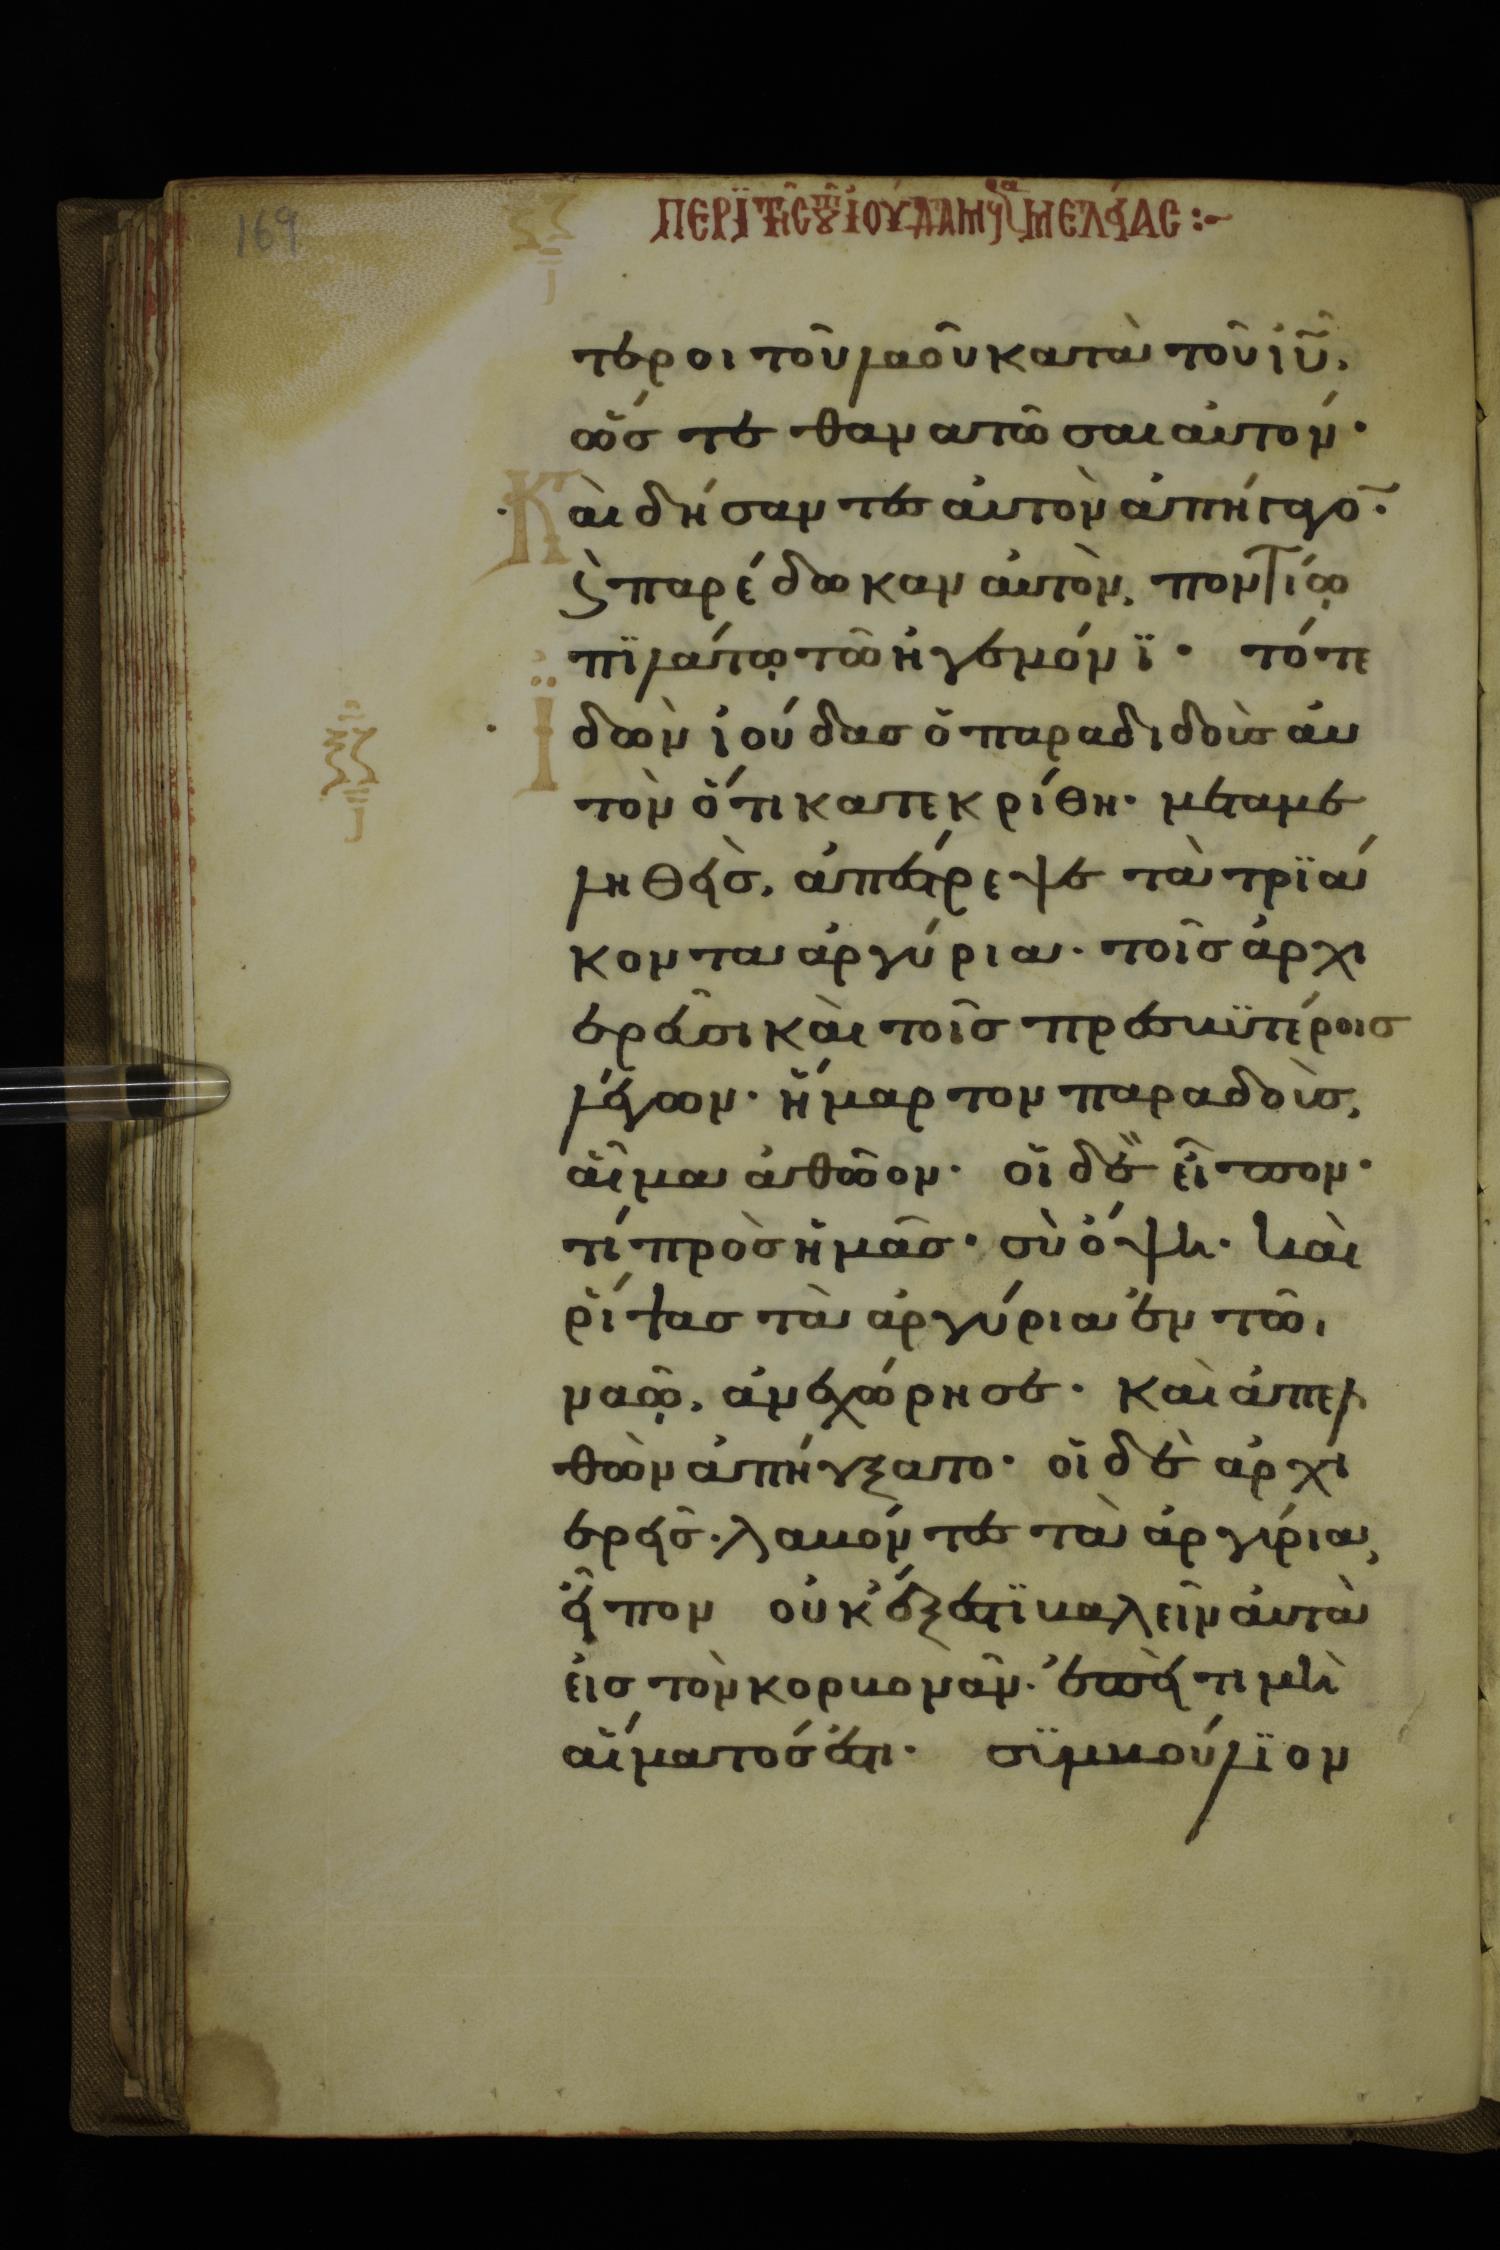 169
ξζ
ΠΕΡῚ ΤΗ͂Σ ἸΟΎΔΑ ΜΕΛΊΑΣ :~
τεροι τοῦ λαοῦ κατὰ τοῦ ιῦ,
ὥστε θανατῶσαι αὐτόν·
Καὶ δήσαντες αὐτὸν ἀπήγαγο̄·
ϗ παρέδωκαν αὐτὸν, ποντίῳ
πϊλάτῳ τῶ ἡγεμόνϊ· τότε
Ϊδὼν ϊούδας ὁ παραδιδοὺς αὐ
τὸν ὅτι κατεκρίθη· μεταμε
ληθεὶς, ἀπέστρεψε τὰ τρϊά
κοντα ἀργύρια· τοῖς ἀρχι
ερεῦσι καὶ τοῖς πρεσβϋτέροις
λέγων· ἥμαρτον παραδοὺς,
αἷμα ἀθῶον· οἱ δὲ εἶπον·
τί πρὸς ἡμᾶς· σὺ ὄψη· καὶ
ῥίψας τὰ ἀργύρια ἐν τῶ
ναῷ, ἀνεχώρησε· καὶ ἀπελ
θὼν ἀπήγξατο· οἱ δὲ ἀρχι
ερεῖς· λαβόντες τὰ ἀργύρια,
εἶπον οὐκ ἔξεστϊ βαλεῖν αὐτὰ
εἰς τὸν κορβονᾶν· ἐπεὶ τιμὴ
αἵματός ἐστι· σϋμβούλϊον
ξζ